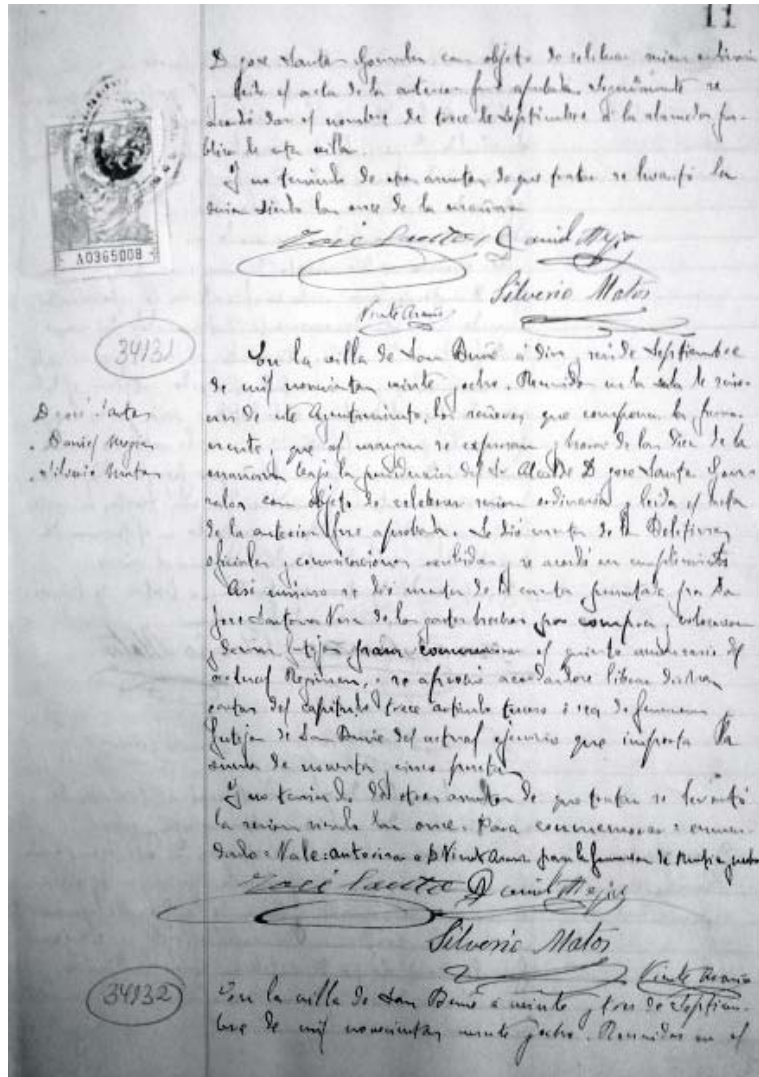 11
D jose Santos Gonzalez con objeto de celebrar sesion ordinaria
leida el acta de la anterior fué aprobada. Seguidamente se
acordó dar el nombre de trece de Septiembre á la alameda pu-
blica de esta villa.
Y no teniendo de otros asuntos de que tratar se levantó la
sesion siendo las once de la mañana
José Santos Daniel Mejias
Silverio Matos
Vicente Arann
A0365008
34131
En la villa de San Bme á diez y seis de Septiembre
de mil novecientos veinte y ocho. Reunidos en la sala de sesio-
nes de este Ayuntamiento, los señores que componen la
permanente, que al margen se expresan y horas de las diez de la
mañana bajo la presidencia del Sr Alcalde D jose Santos Gon-
zalez con objeto de celebrar sesion ordinaria y leida el acta
de la anterior fué aprobada. Se dió cuenta de los Boletines
oficiales y comunicaciones recibidas, se acordó su cumplimiento
D jose Santos
" Daniel Mejias
" Silverio Matos
Asi mismo se dió cuenta de la cuenta presentada por Don
Jose Santana Vera de los gastos hechos por compra, colocacion
y demas festejos para conmemorar el quinto aniversario del
actual Regimen, se aprobó acordandose librar dichos
gastos del capitulo trece articulo tercero ó sea de funciones y
festejos de San Bme del actual ejercicio que importa la
suma de noventa cinco pesetas
Y no teniendo de otros asuntos de que tratar se levantó
la sesion siendo las once. Para conmemorar = enmen-
dado = Vale: autorizar a D Vicente Arann para la
José Santos Daniel Mejias
Silverio Matos
Vicente Arann
34132
En la villa de San Bme á veinte y tres de Septiem-
bre de mil novecientos veinte y ocho. Reunidos en el